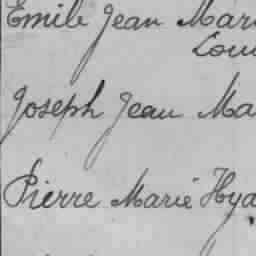 Emile Jean Mari
Loui
Joseph Jean Ma
Pierre Marie Hya